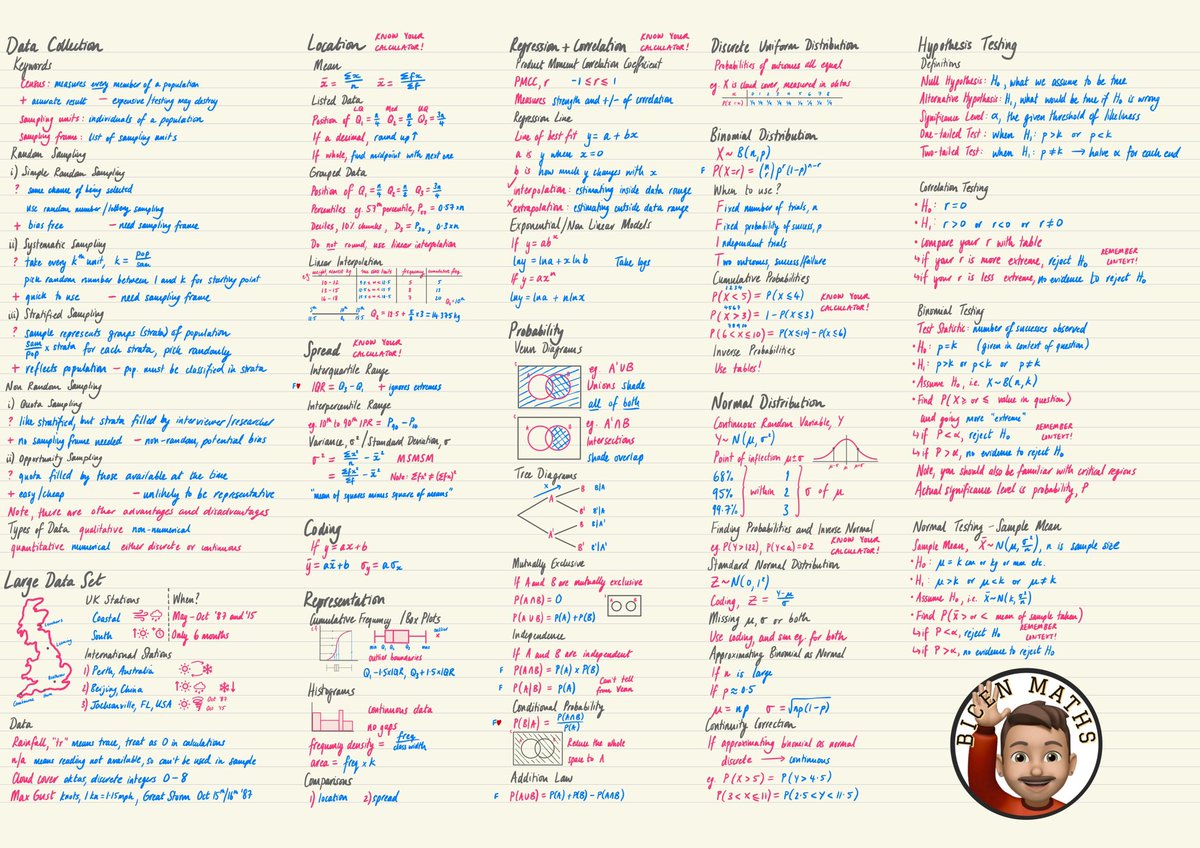 Data Collection
Keywords
Census: measures every member of a population
+ accurate result — expensive/testing may destroy
sampling units: individuals of a population
sampling frame: list of sampling units
Random Sampling
i) Simple Random Sampling
? same chance of being selected
use random number/lottery sampling
+ bias free — need sampling frame
ii) Systematic Sampling
? take every kth unit, k = pop/sam
pick random number between 1 and k for starting point
+ quick to use — need sampling frame
iii) Stratified Sampling
? sample represents groups (strata) of population
sam/pop × strata for each strata, pick randomly
+ reflects population — pop. must be classified in strata
Non Random Sampling
i) Quota Sampling
? like stratified, but strata filled by interviewer/researcher
+ no sampling frame needed — non-random, potential bias
ii) Opportunity Sampling
? quota filled by those available at the time
+ easy/cheap — unlikely to be representative
Note, there are other advantages and disadvantages
Types of Data qualitative non-numerical
quantitative numerical either discrete or continuous
Large Data Set
UK Stations When?
Coastal May - Oct '87 and '15
South Only 6 months
International Stations
1) Perth, Australia
2) Beijing, China
3) Jacksonville, FL, USA Oct '87 Oct '15
Leuchars
Leeming
Heathrow
Hurn
Camborne
Data
Rainfall, "tr" means trace, treat as 0 in calculations
n/a means reading not available, so can't be used in sample
Cloud cover oktas, discrete integers 0-8
Max Gust knots, 1kn = 1.15mph, Great Storm Oct 15th/16th '87
Location KNOW YOUR CALCULATOR!
Mean
x̄ = Σx/n x̄ = Σfx/Σf
Listed Data
LQ Med UQ
Position of Q₁ = n/4 Q₂ = n/2 Q₃ = 3n/4
If a decimal, round up↑
If whole, find midpoint with next one
Grouped Data
Position of Q₁ = n/4 Q₂ = n/2 Q₃ = 3n/4
Percentiles eg. 57th percentile, P₅₇ = 0.57×n
Deciles, 10% chunks, D₃ = P₃₀, 0.3×n
Do not round, use linear interpolation
Linear Interpolation
eg. weight, nearest kg true class limits frequency cumulative freq.
10-12 9.5≤w<12.5 5 5
13-15 12.5≤w<15.5 8 13
16-18 15.5≤w<18.5 7 20 Q₂ = 10th
5th 10th 13th
12.5 Q₂ 15.5 Q₂ = 12.5 + 5/8 × 3 = 14.375kg
Spread KNOW YOUR CALCULATOR!
Interquartile Range
F♥ IQR = Q₃ - Q₁ + ignores extremes
Interpercentile Range
eg. 10th to 90th IPR = P₉₀ - P₁₀
Variance, σ² / Standard Deviation, σ
σ² = Σx²/n - x̄² MSMSM
= Σfx²/Σf - x̄² Note: Σfx² ≠ (Σfx)²
"mean of squares minus square of means"
Coding
If y = ax+b
ȳ = ax̄ + b σy = aσx
Representation
Cumulative Frequency /Box Plots
cf
min Q₁ Q₂ Q₃ max outlier
outlier boundaries
Q₁ -1.5×IQR, Q₃ + 1.5×IQR
Histograms
continuous data
no gaps
frequency density = freq/class width
area = freq × k
Comparisons
1) location 2) spread
Regression + Correlation KNOW YOUR CALCULATOR!
Product Moment Correlation Coefficient
PMCC, r -1 ≤ r ≤ 1
Measures strength and +/- of correlation
Regression Line
Line of best fit y = a + bx
a is y when x=0
b is how much y changes with x
✓ interpolation: estimating inside data range
X extrapolation: estimating outside data range
Exponential/Non Linear Models
If y = abˣ
lny = lna + xlnb Take logs
If y = axⁿ
lny = lna + nlnx
Probability
Venn Diagrams
eg. A'∪B
Unions shade
all of both
eg. A'∩B
Intersections
shade overlap
Tree Diagrams
×
A B B|A
B' B'|A
A' B B|A'
B' B'|A'
Mutually Exclusive
If A and B are mutually exclusive
P(A∩B) = 0
P(A∪B) = P(A) + P(B)
Independence
If A and B are independent
F P(A∩B) = P(A) × P(B)
F P(A|B) = P(A) Can't tell from Venn
Conditional Probability
F♥ P(B|A) = P(A∩B)/P(A)
Reduce the whole
space to A
Addition Law
F P(A∪B) = P(A) + P(B) - P(A∩B)
Discrete Uniform Distribution
Probabilities of outcomes all equal
eg. X is cloud cover, measured in oktas
x 0 1 2 3 4 5 6 7 8
P(X=x) 1/9 1/9 1/9 1/9 1/9 1/9 1/9 1/9 1/9
Binomial Distribution
X ~ B(n,p)
F P(X=r) = (n r) pʳ (1-p)ⁿ⁻ʳ
When to use?
Fixed number of trials, n
Fixed probability of success, p
Independent trials
Two outcomes, success/failure
Cumulative Probabilities
1 2 3 4
P(X < 5) = P(X ≤ 4) KNOW YOUR CALCULATOR!
4 5 6 7
P(X > 3) = 1 - P(X ≤ 3)
7 8 9 10
P(6 < X ≤ 10) = P(X≤10) - P(X≤6)
Inverse Probabilities
Use tables!
Normal Distribution
Continuous Random Variable, Y
Y ~ N(μ, σ²)
Point of inflection μ±σ
μ-σ μ μ+σ
68% 1
95% within 2 σ of μ
99.7% 3
Finding Probabilities and Inverse Normal
eg. P(Y>122), P(Y<a) = 0.2 KNOW YOUR CALCULATOR!
Standard Normal Distribution
Z ~ N(0, 1²)
Coding, Z = Y-μ/σ
Missing μ, σ or both
Use coding, and sim eq. for both
Approximating Binomial as Normal
If n is large
If p ≈ 0.5
μ = np σ = √np(1-p)
Continuity Correction
If approximating binomial as normal
discrete → continuous
eg. P(X > 5) = P(Y > 4.5)
P(3 < X ≤ 11) = P(2.5 < Y < 11.5)
Hypothesis Testing
Definitions
Null Hypothesis: H₀, what we assume to be true
Alternative Hypothesis: H₁, what would be true if H₀ is wrong
Significance Level: α, the given threshold of likeliness
One-tailed Test: when H₁: p>k or p<k
Two-tailed Test: when H₁: p≠k → halve α for each end
Correlation Testing
• H₀: r=0
• H₁: r>0 or r<0 or r≠0
• compare your r with table
↳ if your r is more extreme, reject H₀ REMEMBER CONTEXT!
↳ if your r is less extreme, no evidence to reject H₀
Binomial Testing
Test Statistic: number of successes observed
• H₀: p=k (given in context of question)
• H₁: p>k or p<k or p≠k
• Assume H₀, i.e. X~B(n,k)
• Find P(X ≥ or ≤ value in question)
and going more "extreme"
↳ if P<α, reject H₀ REMEMBER CONTEXT!
↳ if P>α, no evidence to reject H₀
Note, you should also be familiar with critical regions
Actual significance level is probability, P
Normal Testing - Sample Mean
Sample Mean, X̄~N(μ, σ²/n), n is sample size
• H₀: μ = k cm or kg or mm etc.
• H₁: μ>k or μ<k or μ≠k
• Assume H₀, i.e. X̄~N(k, σ²/n)
• Find P(X̄ > or < mean of sample taken)
↳ if P<α, reject H₀ REMEMBER CONTEXT!
↳ if P>α, no evidence to reject H₀
BICEN MATHS